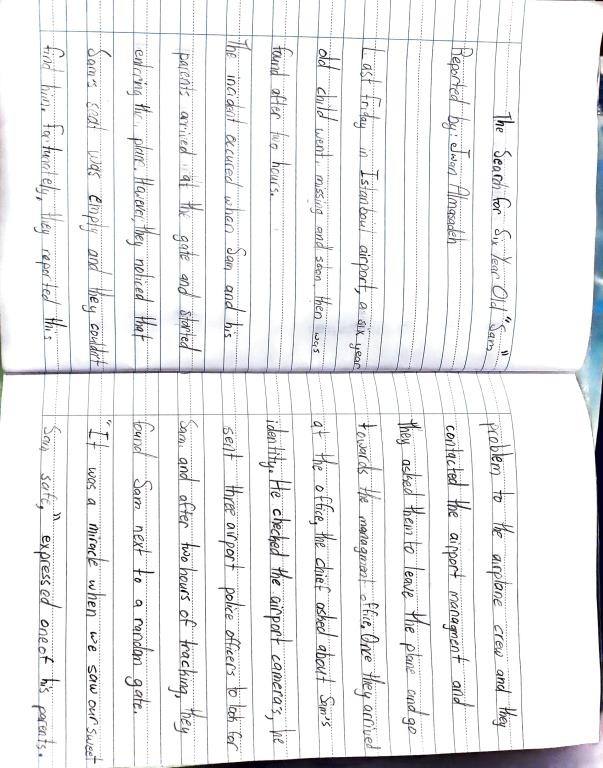 The Search for Six Year Old "Sam"
Reported by: Jwan Almasadeh
Last friday in Istanboul airport, a six year
old child went missing and soon, then was
found after two hours.
The incident occured when Sam, and his
parents arrived at the gate and started
entring the plane. However, they noticed that
Sam's seat was empty and they couldn't
find him. Fortunately, they reported this
problem to the airplane crew and they
contacted the airport managment and
they asked them to leave the plane and go
towards the managment office. Once they arrived
at the office, the chief asked about Sam's
identity. He checked the airport camera's, he
sent three airport police officers to look for
Sam and after two hours of tracking, they
found Sam next to a random gate.
"It was a miracle when we saw our sweet
Sam safe," expressed one of his parents.